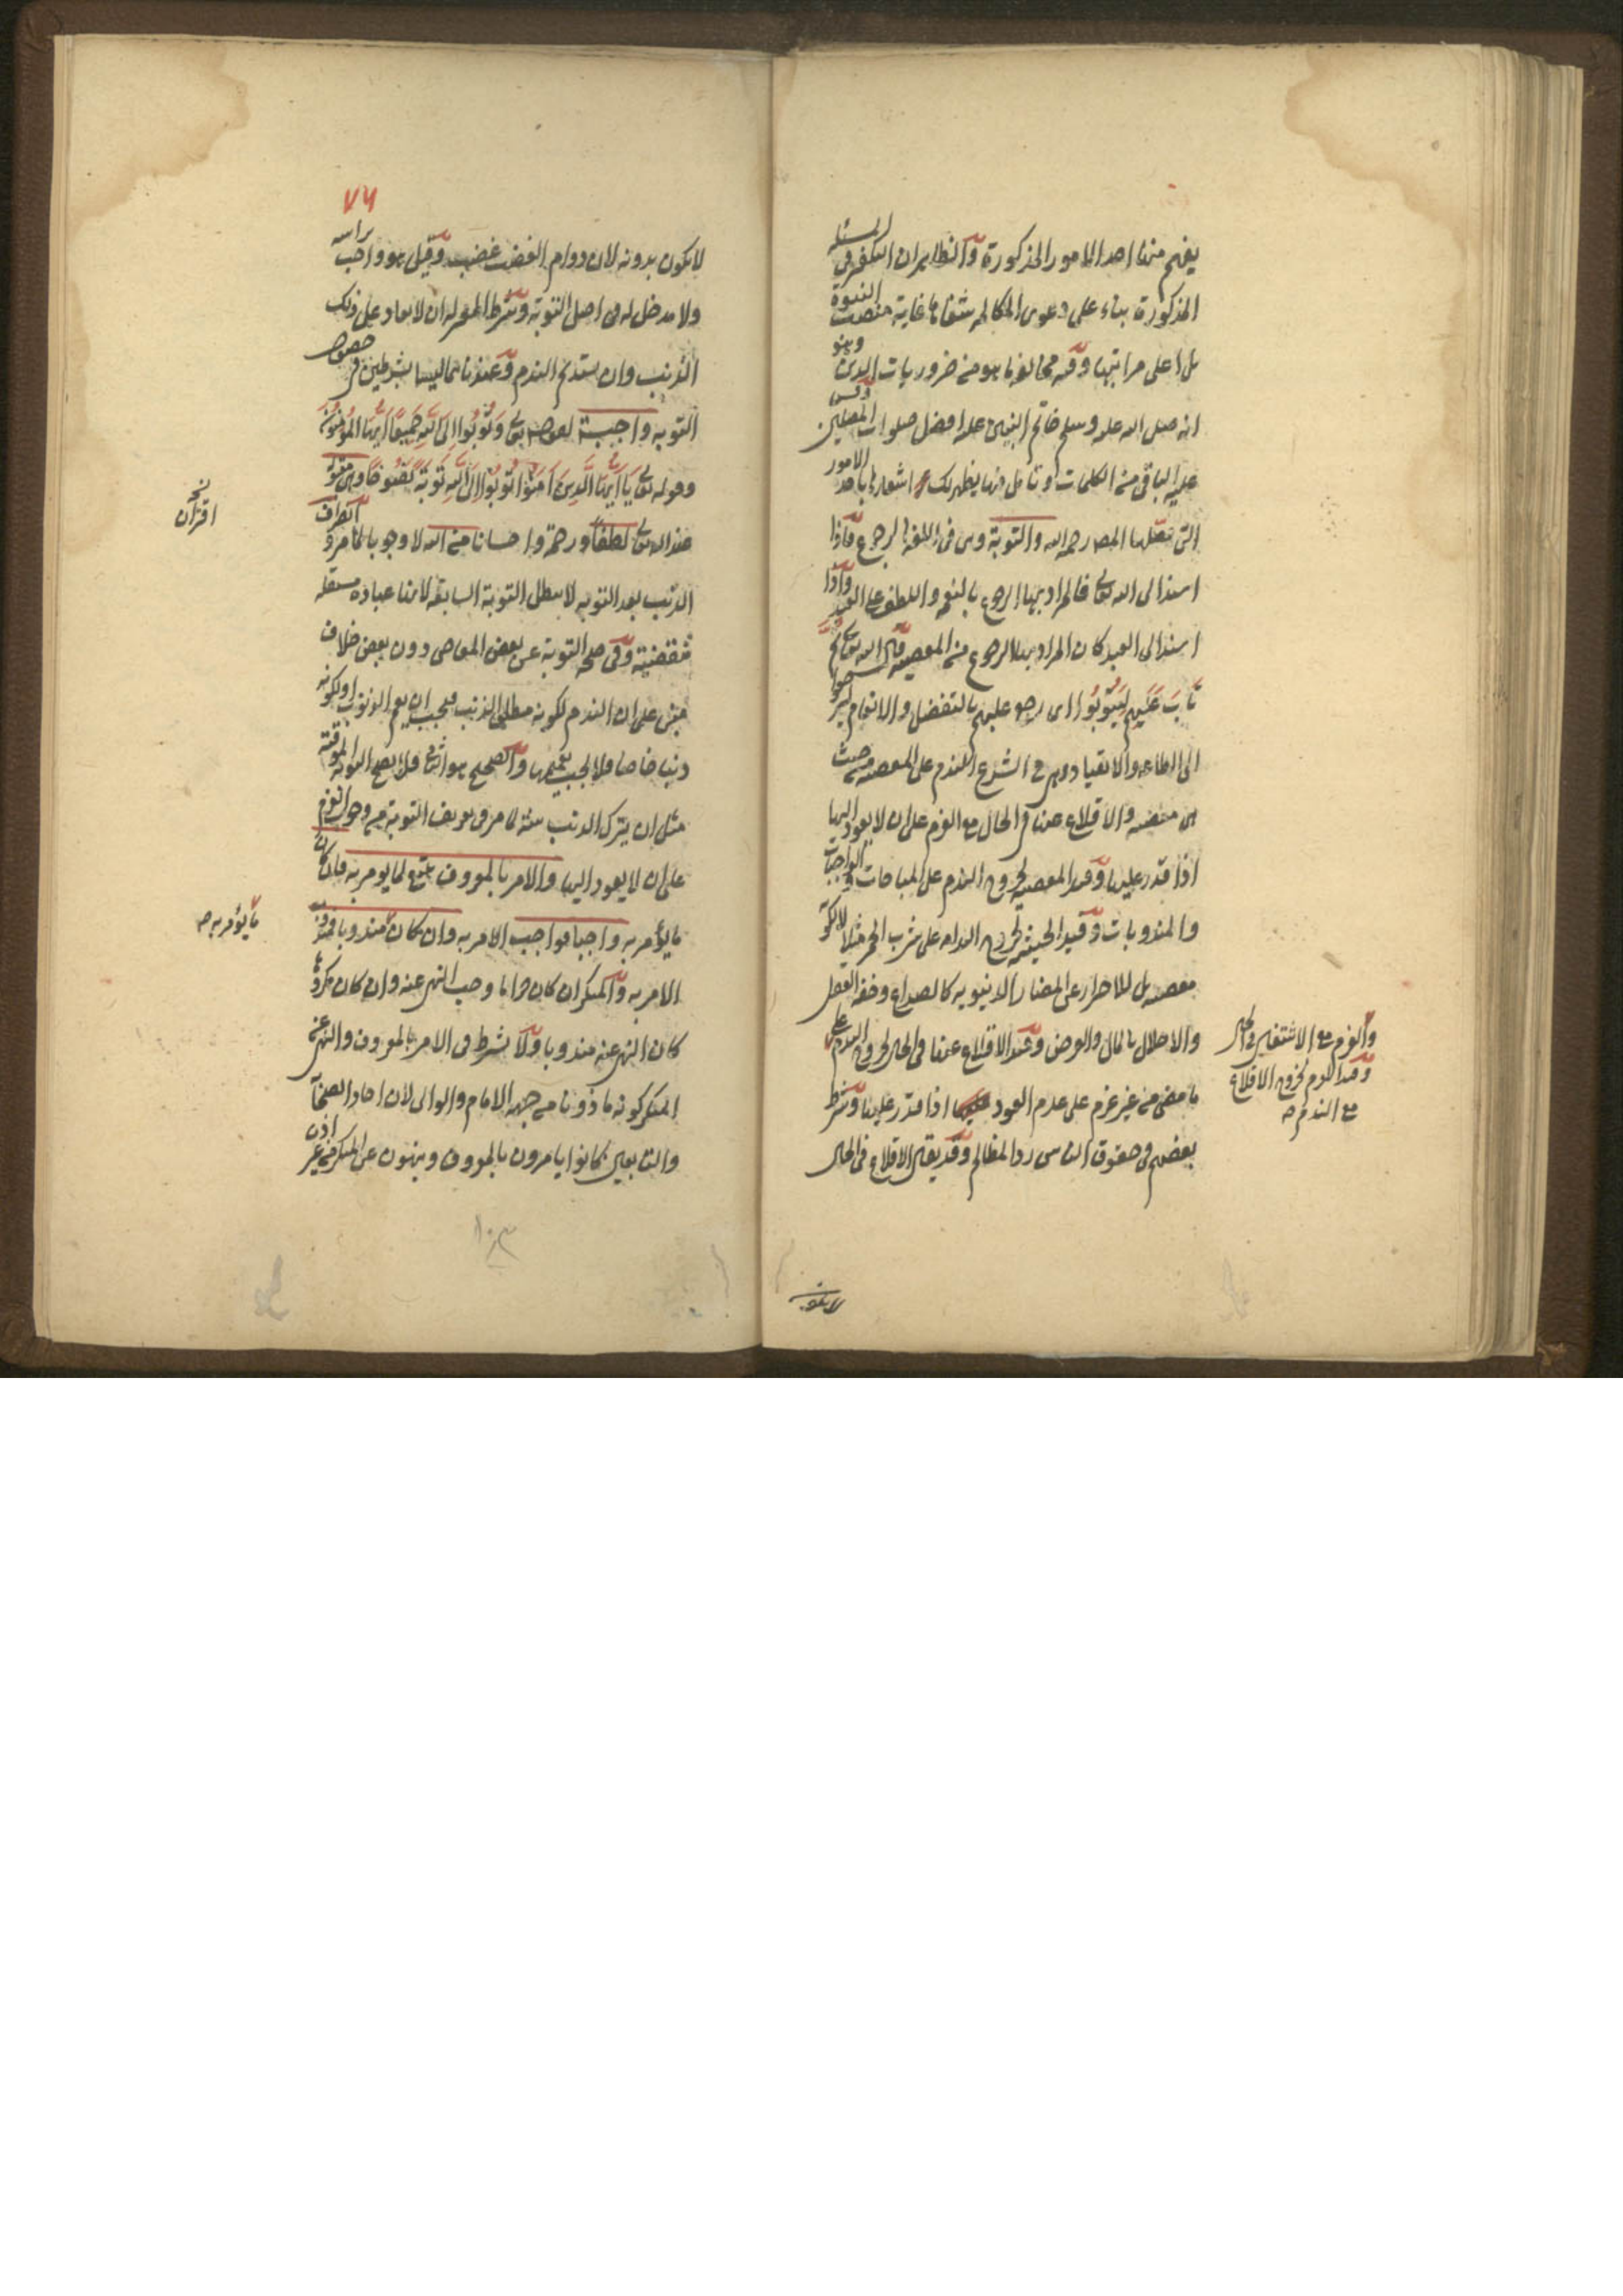 يفهم منها احد الامور المذكورة والظاهر ان التكفير في المسئلة
المذكورة بناء على دعوى المكالمه شفاها غاية منصب النبوة
بل اعلى مراتبها وفيه مخالفة ما هو من ضروريات الدين وهو
انه صلى الله عليه وسلم خاتم النبيين عليه افضل صلوات المصلين وقس
عليه الباقي من الكلمات وتأمل فيها يظهر لك اشعارها باحد الامور
التي فصلها المص رحمه الله والتوبة وهي في اللغة الرجوع فاذا
اسند الى الله تعالى فالمراد بها الرجوع بالنعم واللطف على العبد واذا
اسند الى العبد كان المراد بها الرجوع من المعصية قال الله تعالى ثم
تَابَ عَلَيْهِمْ لِيَتُوبُوا اى رجع عليهم بالتفضل والانعام ليرجعوا
الى الطاعة والانقياد وهي في الشرع الندم على المعصية من حيث
هي معصية والاقلاع عنها في الحال مع العزم على ان لا يعود اليها
اذا قدر عليها وقيد المعصية لخروج الندم على المباحات والواجبات
والمندوبات وقيد الحيثية لخروج الندامة على شرب الخمر مثلا لا لكونه
معصية بل للاحتراز عن المضار الدنيوية كالصداع وخفة العقل
والاخلال بالمال والعرض وقيد الاقلاع عنها في الحال لخروج الندم على
ما مضى من غير عزم على عدم العود اذا قدر عليها وشرط
بعضهم في حقوق الناس رد المظالم وقد يقال الاقلاع في الحال
والعزم مع الاشتغال في الحال
وقيد العزم لخروج الاقلاع
مع الندم صح
لا يكون
٧٦
لا يكون بدونه لان دوام الغضب غضب وقيل هو واجب براسه
ولا مدخل له في اصل التوبة وشرط المعتزله ان لا يعاود على ذلك
الذنب وان يستديم الندم وعندنا هما ليسا بشرطين في حصول
التوبة واجبة لقوله تعالى وَتُوبُوا اِلَى اللهِ جَمِيعًا اَيُّهَا الْمُؤْمِنُونَ
وقوله تعالى يَا اَيُّهَا الَّذِينَ آمَنُوا تُوبُوا اِلَى اللهِ تَوْبَةً نَصُوحًا وهي مقبولة
عند الله تعالى لطفا ورحمة واحسانا من الله لا وجوبا كما مر واقتراف
الذنب بعد التوبة لا يبطل التوبة السابقة لانها عبادة مستقلة
منقضية وفي صحة التوبة عن بعض المعاصي دون بعض خلاف
مبني على ان الندم لكونه مطلق الذنب فيجب ان يعم الذنوب او لكونه
ذنبا خاصا فلا يجب تعميمها والصحيح هو الثاني فلا يصح التوبة الموقتة
مثل ان يترك الذنب سنة لما مر في تعريف التوبة من وجوب العزم
على ان لا يعود اليها والامر بالمعروف تبع لما يومر به فان كان
ما يؤمر به واجبا فواجب الامر به وان كان مندوبا فمندوب
الامر به والمنكر ان كان حراما وجب النهي عنه وان كان مكروها
كان النهي عنه مندوبا ولا يشرط في الامر بالمعروف والنهي عن
المنكر كونه ماذونا من جهة الامام والوالى لان احاد الصحابة
والتابعين كانوا يامرون بالمعروف وينهون عن المنكر من غير اذن
نخ
اقتران
ما يؤمر به صح
١٠٣